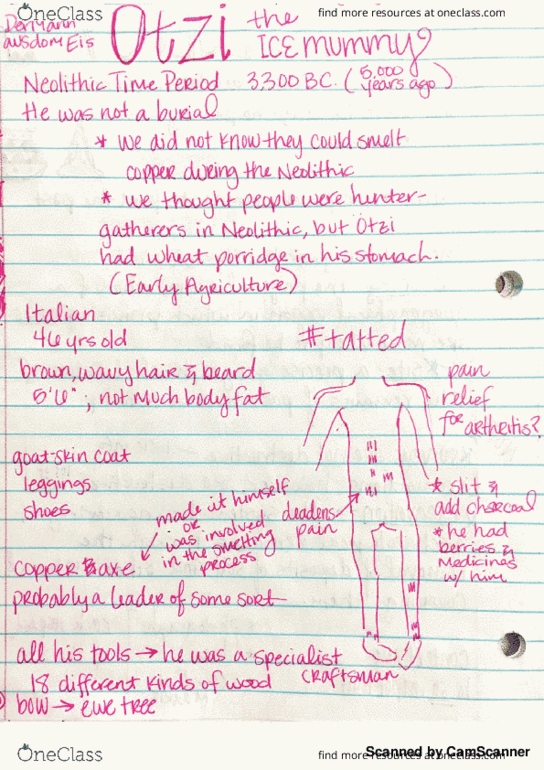 OneClass
find more resources at oneclass.com
Dermann
ausdom Eis
Otzi the
ICE mummy
Neolithic Time Period 3,300 BC. (5,000 years ago)
He was not a burial
* we did not know they could smelt
copper during the Neolithic
* we thought people were hunter-
gatherers in Neolithic, but Otzi
had wheat porridge in his stomach.
(Early Agriculture)
Italian
46 yrs old
#tatted
brown, wavy hair & beard
5'6" ; not much body fat
pain
relief
for arthritis?
goat-skin coat
leggings
shoes
made it himself
or
was involved
in the smelting
process
deadens
pain
* slit &
add charcoal
* he had
berries &
Medicines
w/ him
copper axe
probably a leader of some sort
all his tools → he was a specialist
craftsman
18 different kinds of wood
bow → ewe tree
OneClass
find more resources at oneclass.com
Scanned by CamScanner